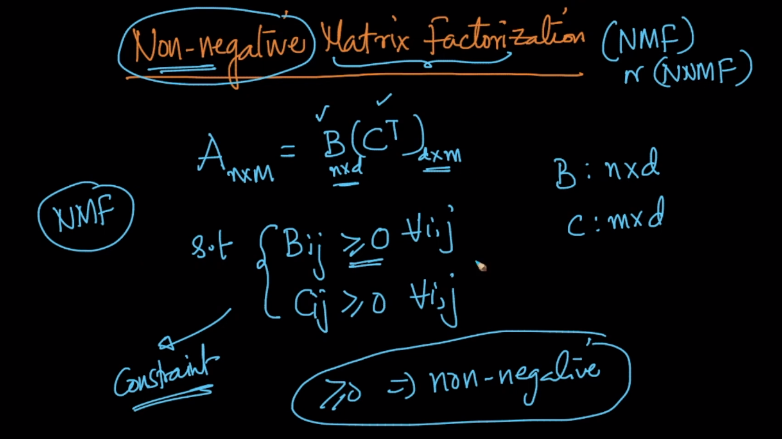 Non-negative Matrix Factorization (NMF)
or (NNMF)
A n×m = B n×d (C^T) d×m
B : n×d
C : m×d
NMF
s.t { Bij ≥ 0 ∀i,j
Cij ≥ 0 ∀i,j
Constraint
≥0 ⇒ non-negative